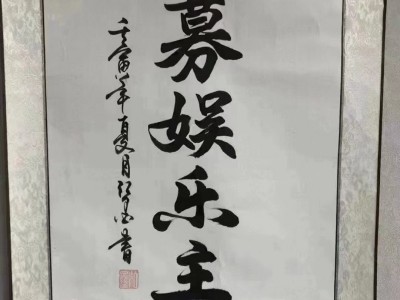 募娱乐主
壬寅年夏月书